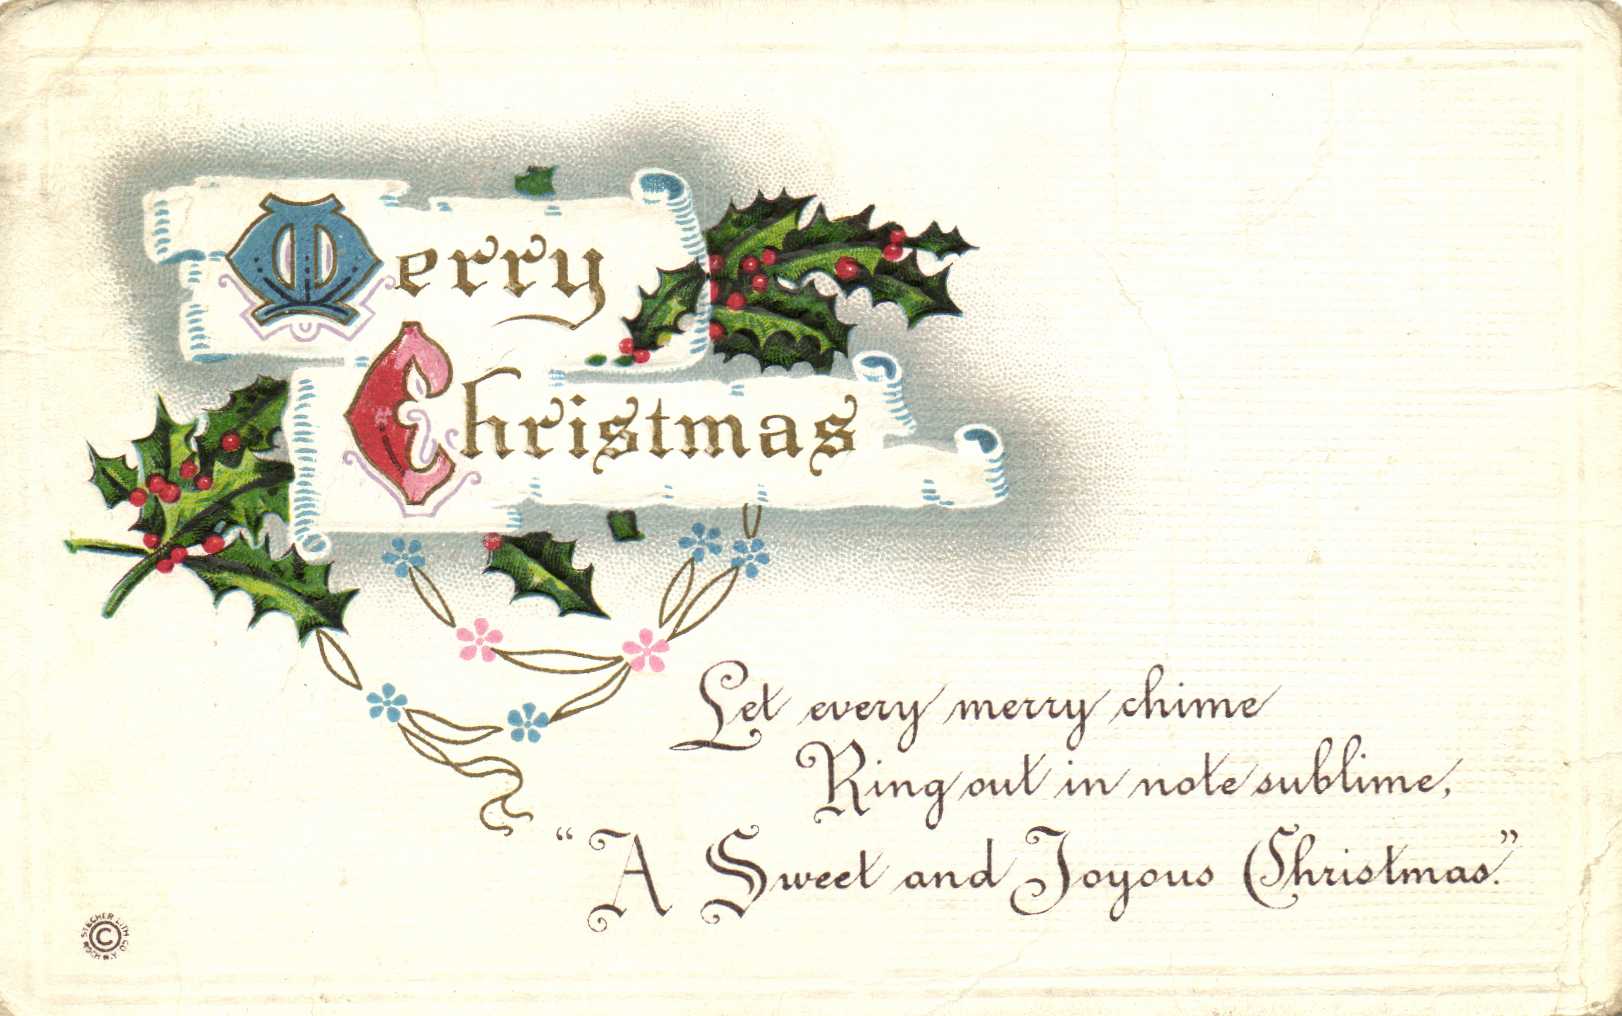 Merry
Christmas
Let every merry chime
Ring out in note sublime,
“A Sweet and Joyous Christmas.”
© STECHER LITH. CO. ROCH. N.Y.